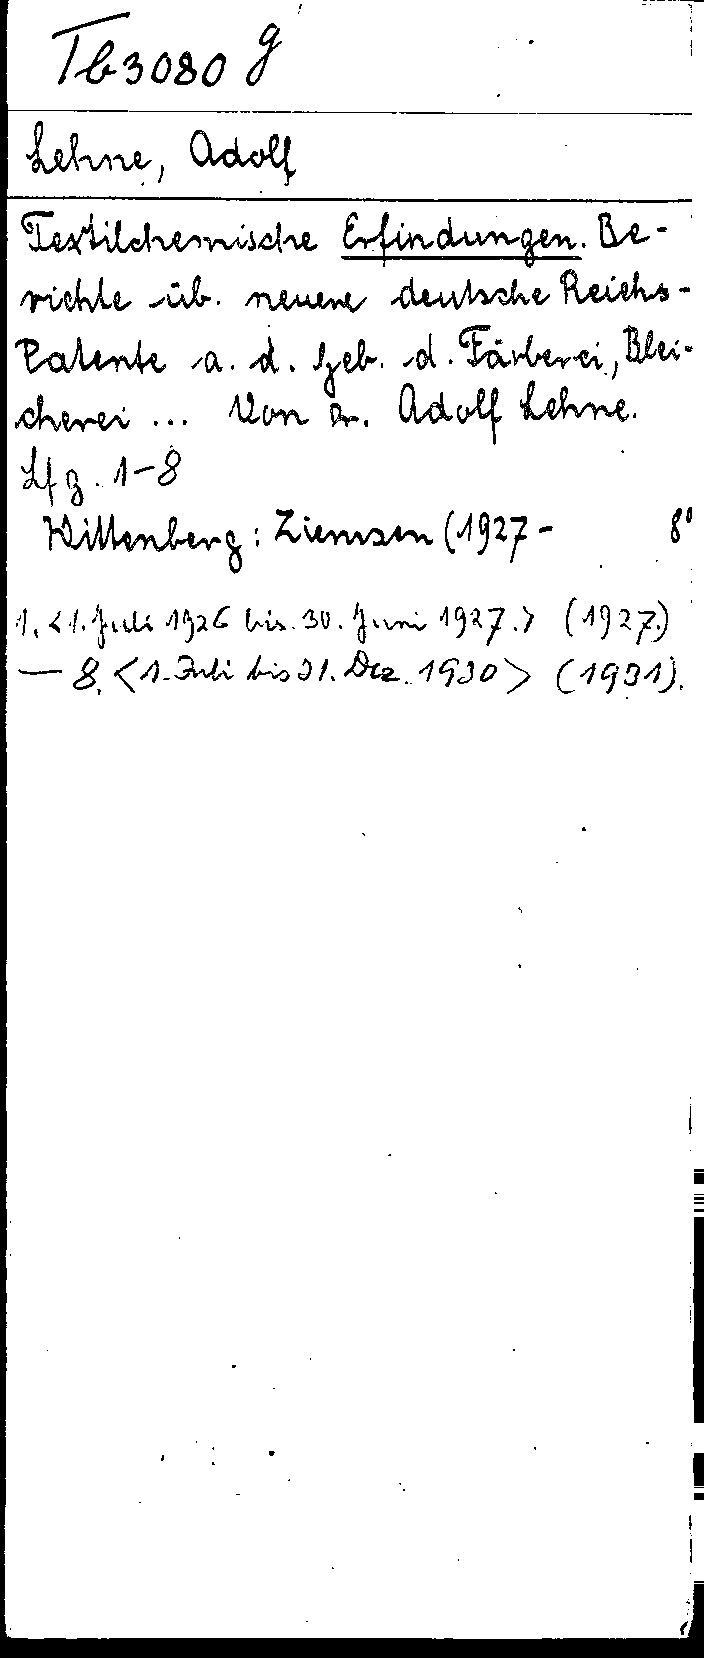 Tb 3080 g
Lehne, Adolf
Textilchemische Erfindungen. Be-
richte üb. neuere deutsche Reichs-
Patente a. d. Geb. d. Färberei, Blei-
cherei ... Von Dr. Adolf Lehne.
Lfg. 1-8
Wittenberg: Ziemsen (1927- 8°
1. <1. Juli 1926 bis 30. Juni 1927.> (1927.)
— 8. <1. Juli bis 31. Dez. 1930> (1931).